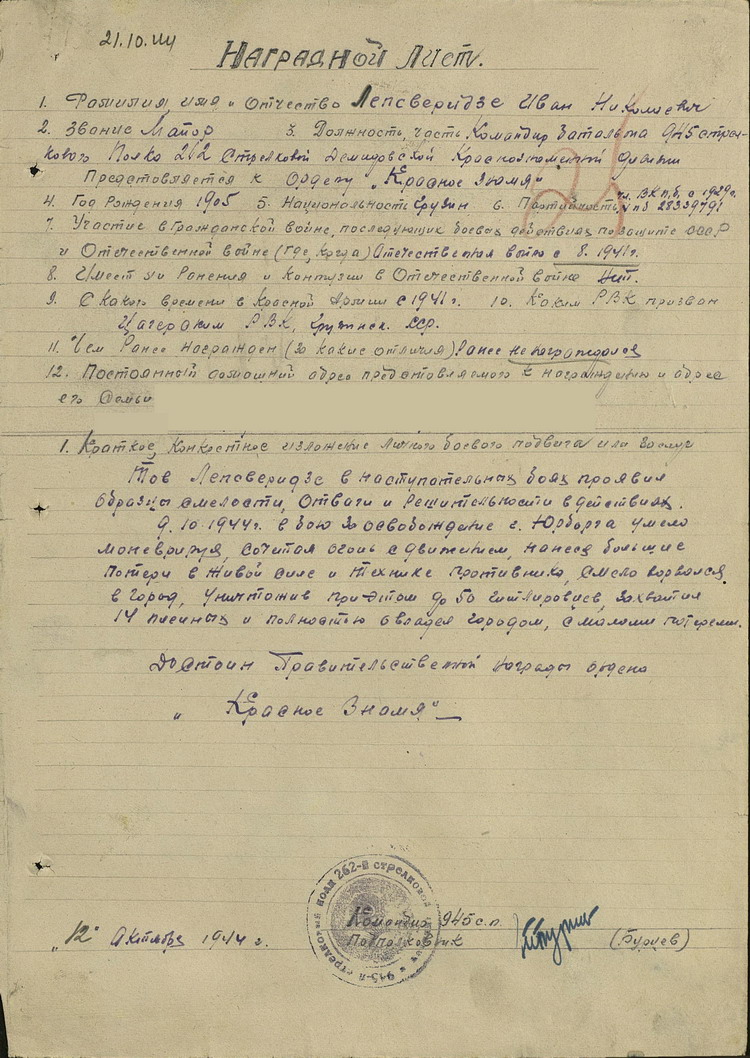 21.10.44
Наградной лист.
1. Фамилия, имя и Отчество Лепсверидзе Иван Николаевич
2. Звание Майор 3. Должность, часть Командир батальона 945 стрел-
кового Полка 262 Стрелковой Демидовской Краснознаменной дивизии
Представляется к Ордену „Красное Знамя"
4. Год Рождения 1905 5. Национальность Грузин 6. Партийность чл. ВКП(б) с 1929г. п.б 28339791
7. Участие в Гражданской войне, последующих боевых действиях по защите СССР
и Отечественной войне (где, когда) Отечественная война с 8. 1941г.
8. Имеет ли Ранения и контузии в Отечественной войне Нет.
9. С Какого времени в Красной Армии с 1941г. 10. Каким РВК призван
Цагерским РВК, Грузинск. ССР.
11. Чем Ранее награжден (за какие отличия) Ранее не награждался
12. Постоянный домашний адрес представляемого к награждению и адрес
его Семьи
1. Краткое, Конкретное изложение личного боевого подвига или заслуг
Тов Лепсверидзе в наступательных боях проявил
образцы смелости, Отваги и Решительности в действиях.
9.10.1944г. в бою за освобождение г. Юрборга умело
маневрируя, сочетая огонь с движением, нанеся большие
потери в живой силе и технике противника, смело ворвался
в город, уничтожив при этом до 50 гитлеровцев, захватил
14 пленных и полностью овладел городом, с малыми потерями.
Достоин Правительственной награды ордена
„ Красное Знамя"
„12" Октября 1944 г.
Командир 945 с.п.
Подполковник
(Бурцев)